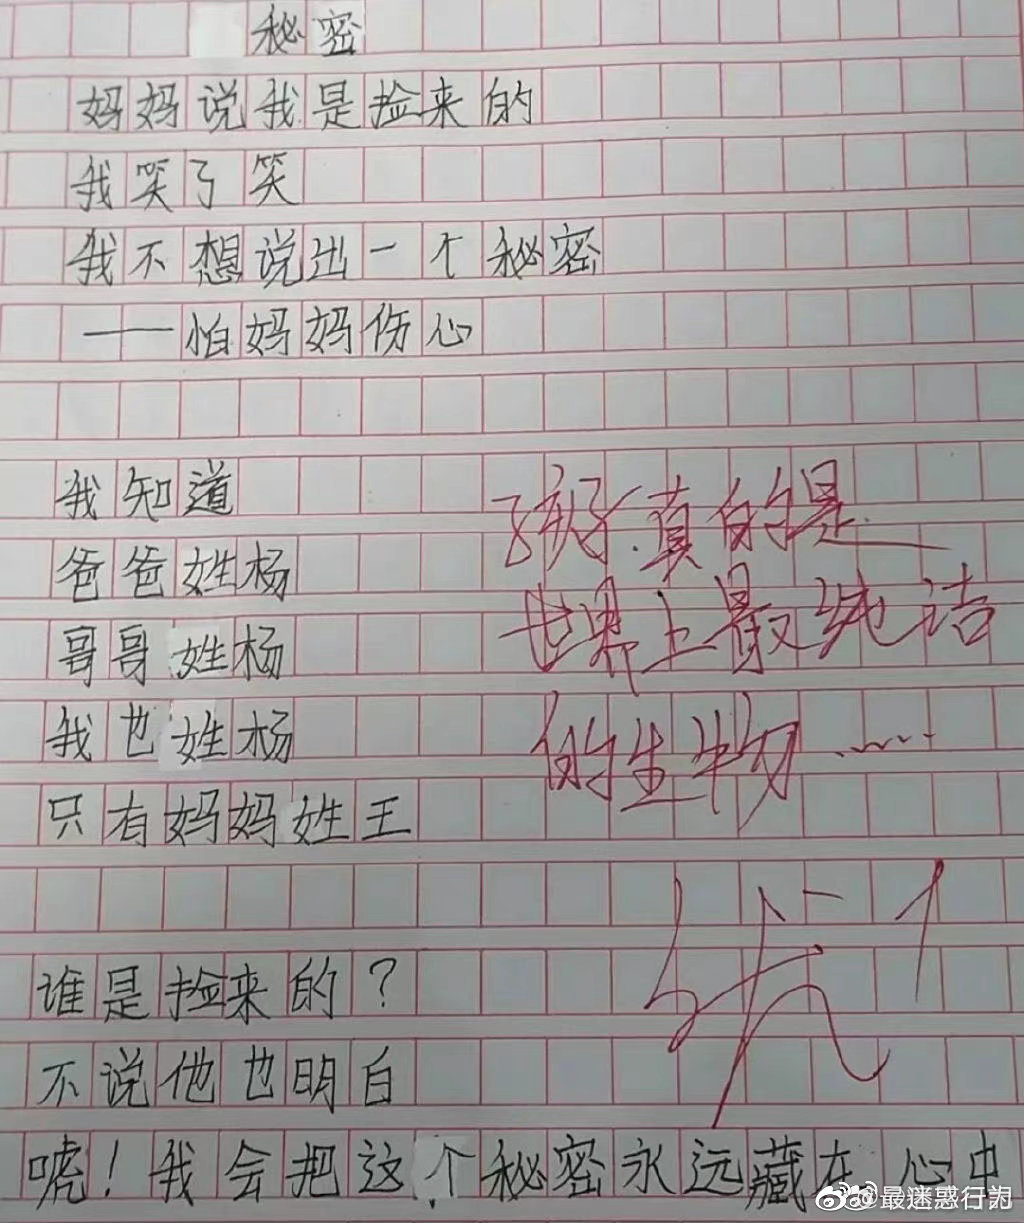 秘密
妈妈说我是捡来的
我笑了笑
我不想说出一个秘密
——怕妈妈伤心
我知道
爸爸姓杨
哥哥姓杨
我也姓杨
只有妈妈姓王
谁是捡来的?
不说他也明白
唬!我会把这个秘密永远藏在心中
孩子真的是
世界上最纯洁
的生物……
优↑
@最迷惑行为